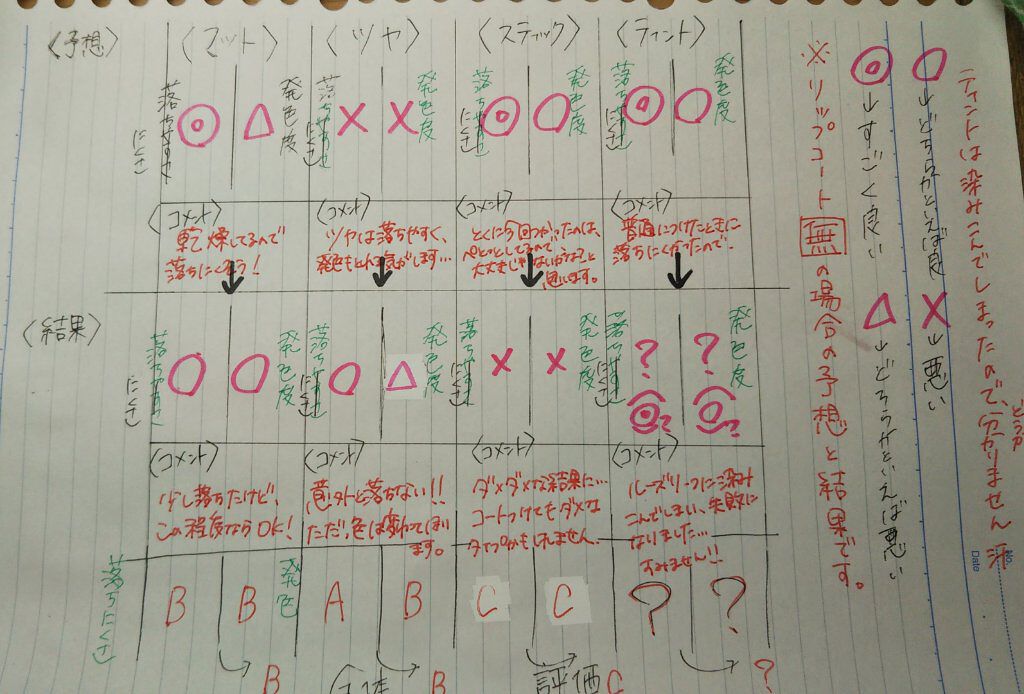 〈予想〉
〈マット〉 〈ツヤ〉 〈スティック〉 〈ティント〉
落ちにくさ ◎ △ 発色度
落ちにくさ × × 発色度
落ちにくさ ◎ ○ 発色度
落ちにくさ ◎ ○ 発色度
〈コメント〉
乾燥してるので
落ちにくそう!
〈コメント〉
ツヤは落ちやすく、
〈コメント〉
とくに今回つかったのは、
大丈夫じゃないかなって
思います。
〈コメント〉
普通につけたときに
落ちにくかったので…
〈結果〉
落ちにくさ ○ ○ 発色度
落ちにくさ ○ △ 発色度
落ちにくさ × × 発色度
落ちにくさ ? ? 発色度
◎? ○?
〈コメント〉
少し落ちたけど、
この程度ならOK!
〈コメント〉
意外と落ちない!!
ただ、色は変わってしまい
ます。
〈コメント〉
ダメダメな結果に…
コートつけてもダメな
タイプかもしれません.
〈コメント〉
ルーズリーフに染み
こんでしまい、失敗に
なりました…
すみません!!
落ちにくさ B B 発色
A B
C C
? ?
B B 評価 C ?
ティントは染みこんでしまったので、どうか分かりません汗
○→どちらかといえば良い ×→悪い
◎→すごく良い △→どちらかといえば悪い
※リップコート無の場合の予想と結果です。
No.
Date